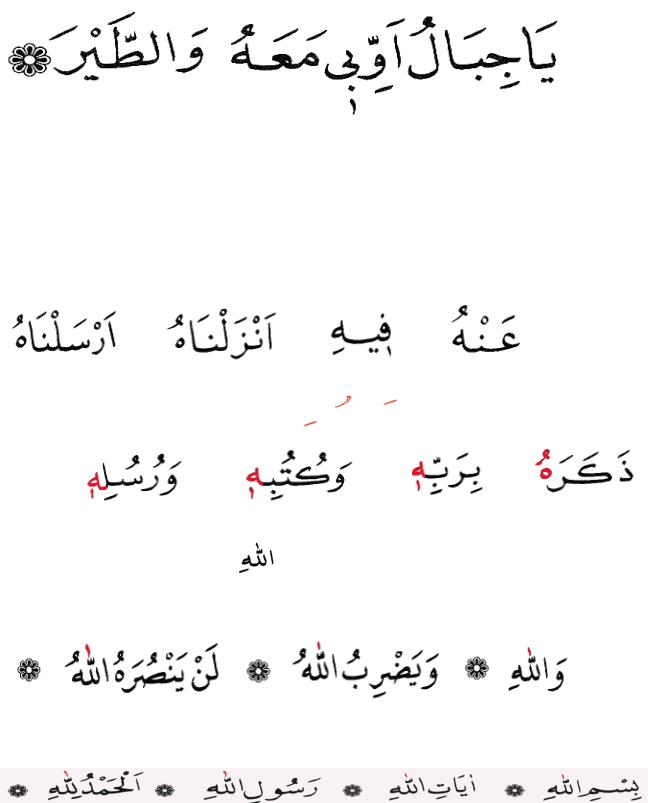 يَاجِبَالُ اَوِّبٖي مَعَهُ وَالطَّيْرَ ❁
عَنْهُ فٖيهِ اَنْزَلْنَاهُ اَرْسَلْنَاهُ
َ ُ ِ
ذَكَرَهُ بِرَبِّهٖ وَكُتُبِهٖ وَرُسُلِهٖ
اللهِ
وَاللّٰهِ ❁ وَيَضْرِبُ اللّٰهُ ❁ لَنْ يَنْصُرَهُ اللّٰهُ ❁
بِسْمِ اللّٰهِ ❁ اٰيَاتِ اللّٰهِ ❁ رَسُولِ اللّٰهِ ❁ اَلْحَمْدُ لِلّٰهِ ❁